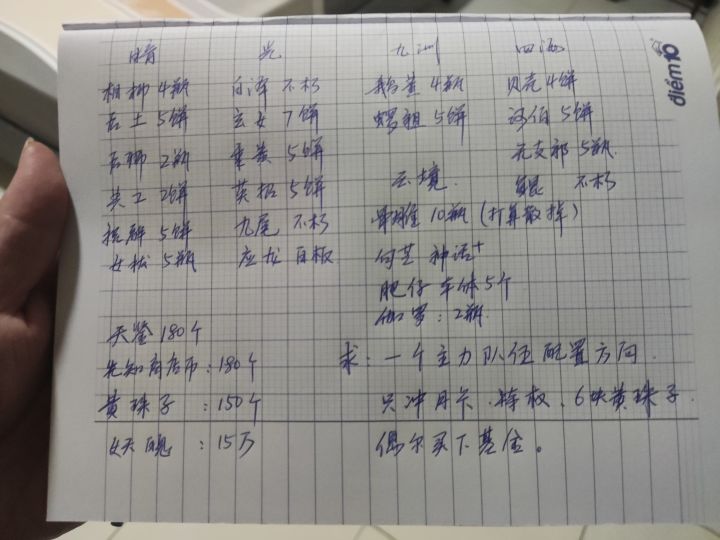 暗 光 九洲 四海
相柳 4瓶 白泽 不朽 鹅黄 4瓶 贝壳 4饼
后土 5饼 玄女 7饼 螺祖 5饼 河伯 5饼
后柳 2瓶 重黎 5饼 无支祁 5瓶
共工 2饼 英招 5饼 云境 鲲 不朽
梳醉 5饼 九尾 不朽 10瓶 (打算散掉)
女 5瓶 应龙 白板 句芒 神话+
肥仔 车体 5个
伽罗: 2瓶
天鉴 180个
先知商店币: 180个 求: 一个主力队伍配置方向
黄珠子 : 150个 只冲月卡、特权、6块黄珠子
女天魄 : 15万 偶尔买下基金。
điểm10